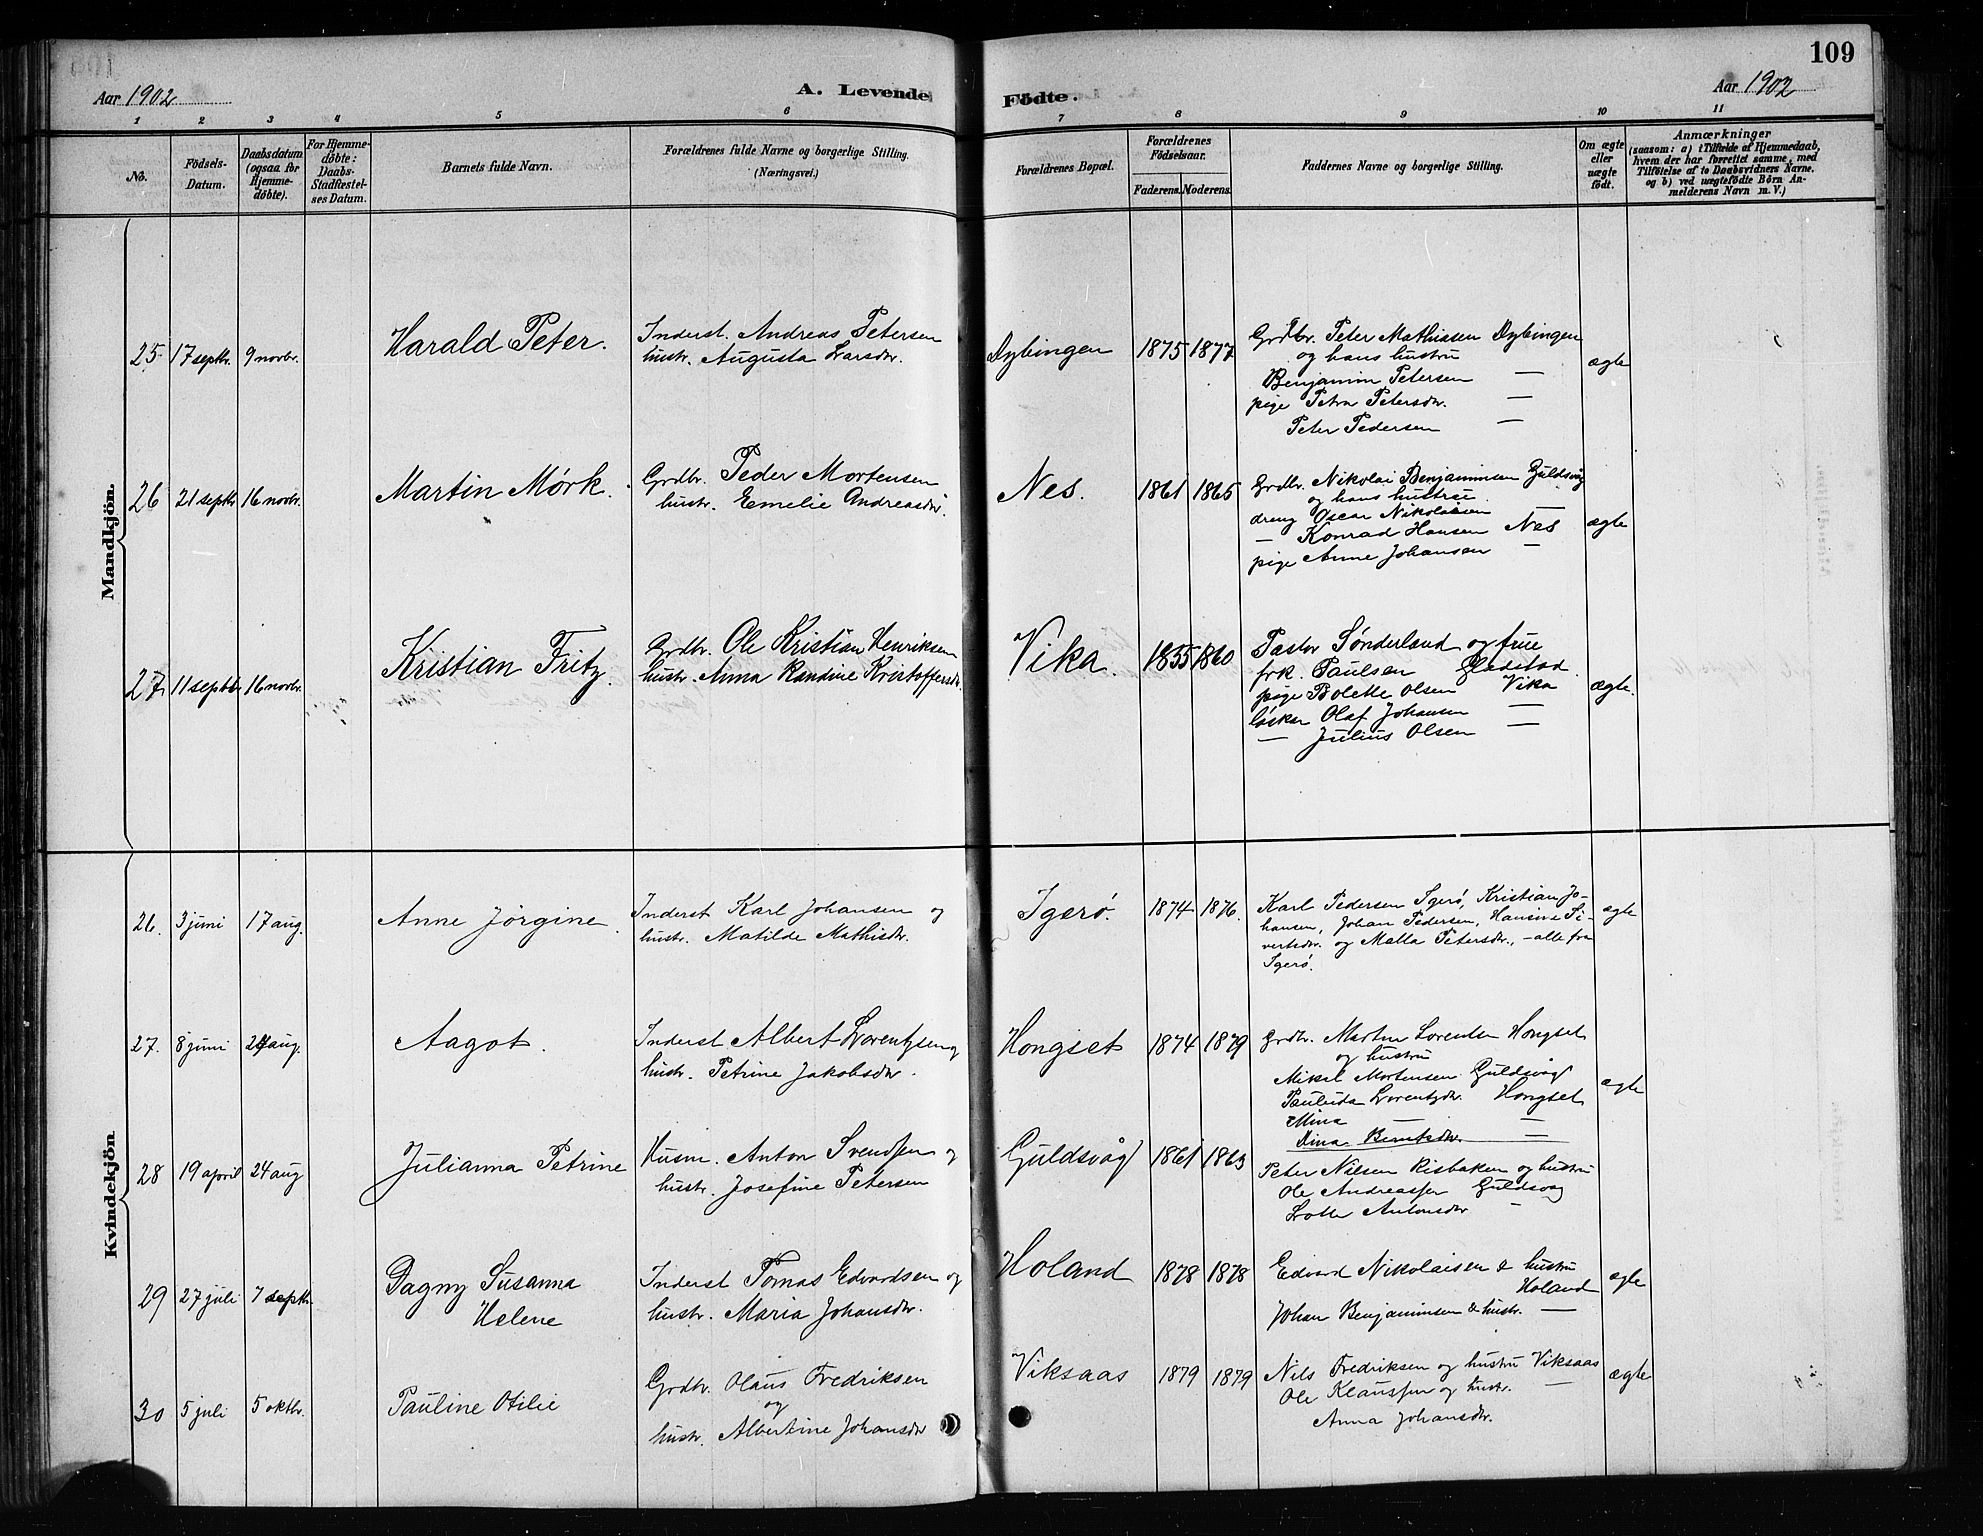 109
Aar 1902
A. Levende
Fødte.
Aar 1902
1 2 3 4 5 6 7 8 9 10 11
No.
Födsels-
Datum.
Daabsdatum
(ogsaa for
Hjemme-
döbte).
For Hjemme-
döbte:
Daabs-
Stadfæstel-
ses Datum.
Barnets fulde Navn.
Forældrenes fulde Navne og borgerlige Stilling.
(Næringsvei.)
Forældrenes Bopæl.
Forældrenes
Födselsaar.
Faderens. Moderens.
Faddernes Navne og borgerlige Stilling.
Om ægte
eller
uægte
födt.
Anmærkninger
(saasom: a) i Tilfælde af Hjemmedaab,
hvem der har forrettet samme, med
Tilföielse af to Daabsvidners Navne,
og b) ved uægtefödte Börn An-
melderens Navn m. V.)
Mandkjön.
25 17 septbr. 9 novbr.
Harald Peter.
Inderst. Andreas Petersen
hustr. Augusta Larsdtr.
Dybingen 1875 1877
Grdbr. Peter Mathissen Dybingen
og hans hustru
Benjamin Petersen —
pige Petra Petersdtr. —
Peter Pedersen —
ægte
26 21 septbr 16 novbr.
Martin Mörk.
Grdbr. Peder Mortensen
hustr. Emelie Andreasdtr.
Nes. 1861 1865
Grdbr. Nikolai Benjaminsen Guldsvåg
og hans hustru
dreng Oscar Nikolaisen —
— Konrad Hansen Nes
pige Anne Johansen —
ægte
27 11 septbr 16 novbr.
Kristian Fritz.
Grdbr. Ole Kristian Henriksen
hustr. Anna Randine Kristoffersdtr.
Vika. 1855 1860
Pastor Sönderland og frue
frk. Paulsen Gladstad.
pige Bolette Olsen Vika
löskar Olaf Johansen —
— Julius Olsen —
ægte.
Kvindekjön
26. 3 juni 17 aug.
Anne Jörgine.
Inderst Karl Johansen og
hustr. Matilde Mathisdtr.
Igerö. 1874 1876.
Karl Pedersen Igerö, Kristian Jo-
hansen, Johan Pedersen, Hansine Si-
vertsdtr. og Malla Petersdtr., - alle fra
Igerö.
ægte
27. 8 juni 24 aug.
Aagot.
Inderst Albert Lorentzen og
hustr. Petrine Jakobsdtr.
Hongset 1874 1879
Grdbr. Martin Lorentsen Hongset
og hustru
Mikal Mortensen Guldsvåg
Paulida Lorentzdtr. Hongset
Mina — —
Dina Berntsdtr. —
ægte
28 19 april 24 aug
Julianna Petrine
Husm. Anton Svendsen og
hustr. Josefine Petersen
Guldsvåg 1861 1863
Peter Nilsen Risbakken og hustru
Ole Andreassen Guldsvåg
Lotte Antonsdtr —
29 27 juli 7 septbr.
Dagny Susanna
Helene
Inderst Tomas Edvardsen og
hustr. Maria Johansdtr.
Holand 1878 1878
Edvard Nikolaisen & hustru
Holand
Johan Benjaminsen & hustr. —
ægte
30 5 juli 5 oktbr.
Pauline Otilie
Grdbr. Olaus Fredriksen
og
hustr. Albertine Johansdtr
Viksaas 1879 1879
Nils Fredriksen og hustru Viksaas
Ole Klaussen og hustr. —
Anna Johansdtr.
ægte